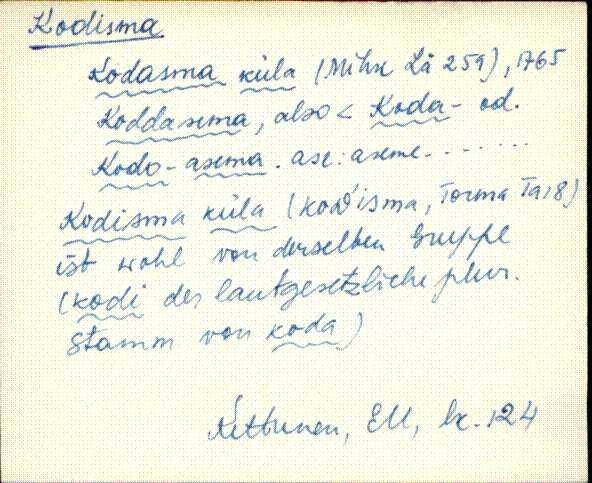 Kodisma
Kodasma küla (Mihk Lä 259), 1765
Koddasema, also < Koda- od.
Kodo-asema. ase: aseme.......
Kodisma küla (kod'isma, Torma Ta 18)
ist wohl von derselben Gruppe
(kodi der lautgesetzliche plur.
Stamm von koda)
Kettunen, EM, lk. 124